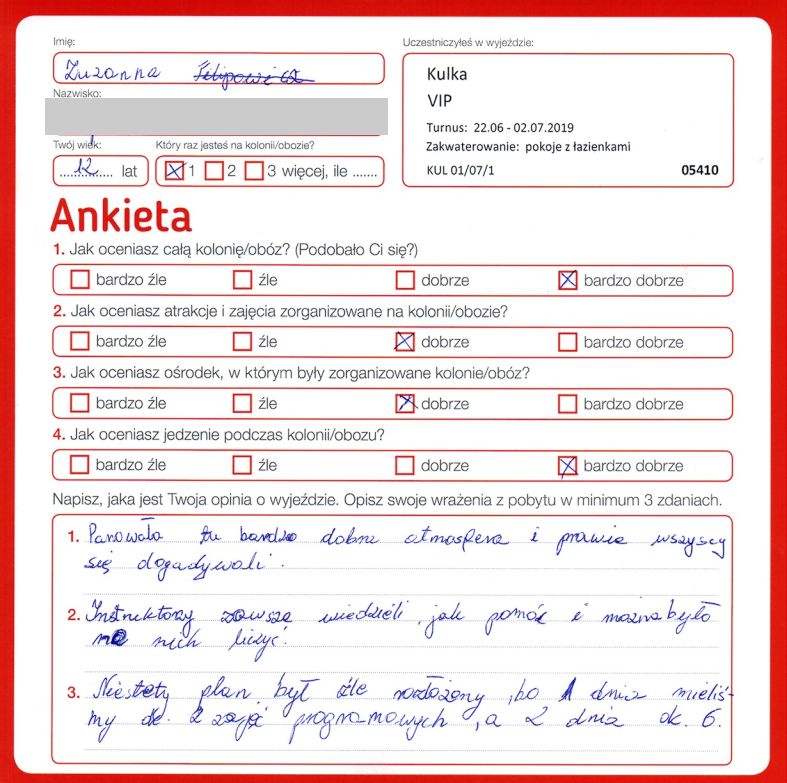 Imię:
Uczestniczyłeś w wyjeździe:
Zuzanna Filipowicz
Kulka
Nazwisko:
VIP
Turnus: 22.06 - 02.07.2019
Twój wiek:
Który raz jesteś na kolonii/obozie?
Zakwaterowanie: pokoje z łazienkami
....12.... lat
1 2 3 więcej, ile .......
KUL 01/07/1 05410
Ankieta
1. Jak oceniasz całą kolonię/obóz? (Podobało Ci się?)
bardzo źle źle dobrze bardzo dobrze
2. Jak oceniasz atrakcje i zajęcia zorganizowane na kolonii/obozie?
bardzo źle źle dobrze bardzo dobrze
3. Jak oceniasz ośrodek, w którym były zorganizowane kolonie/obóz?
bardzo źle źle dobrze bardzo dobrze
4. Jak oceniasz jedzenie podczas kolonii/obozu?
bardzo źle źle dobrze bardzo dobrze
Napisz, jaka jest Twoja opinia o wyjeździe. Opisz swoje wrażenia z pobytu w minimum 3 zdaniach.
1. Panowała tu bardzo dobra atmosfera i prawie wszyscy
się dogadywali.
2. Instruktorzy zawsze wiedzieli, jak pomóc i można było
na nich liczyć.
3. Niestety plan był źle rozłożony, bo 1 dnia mieliś-
my ok. 2 zajęć programowych, a 2 dnia ok. 6.